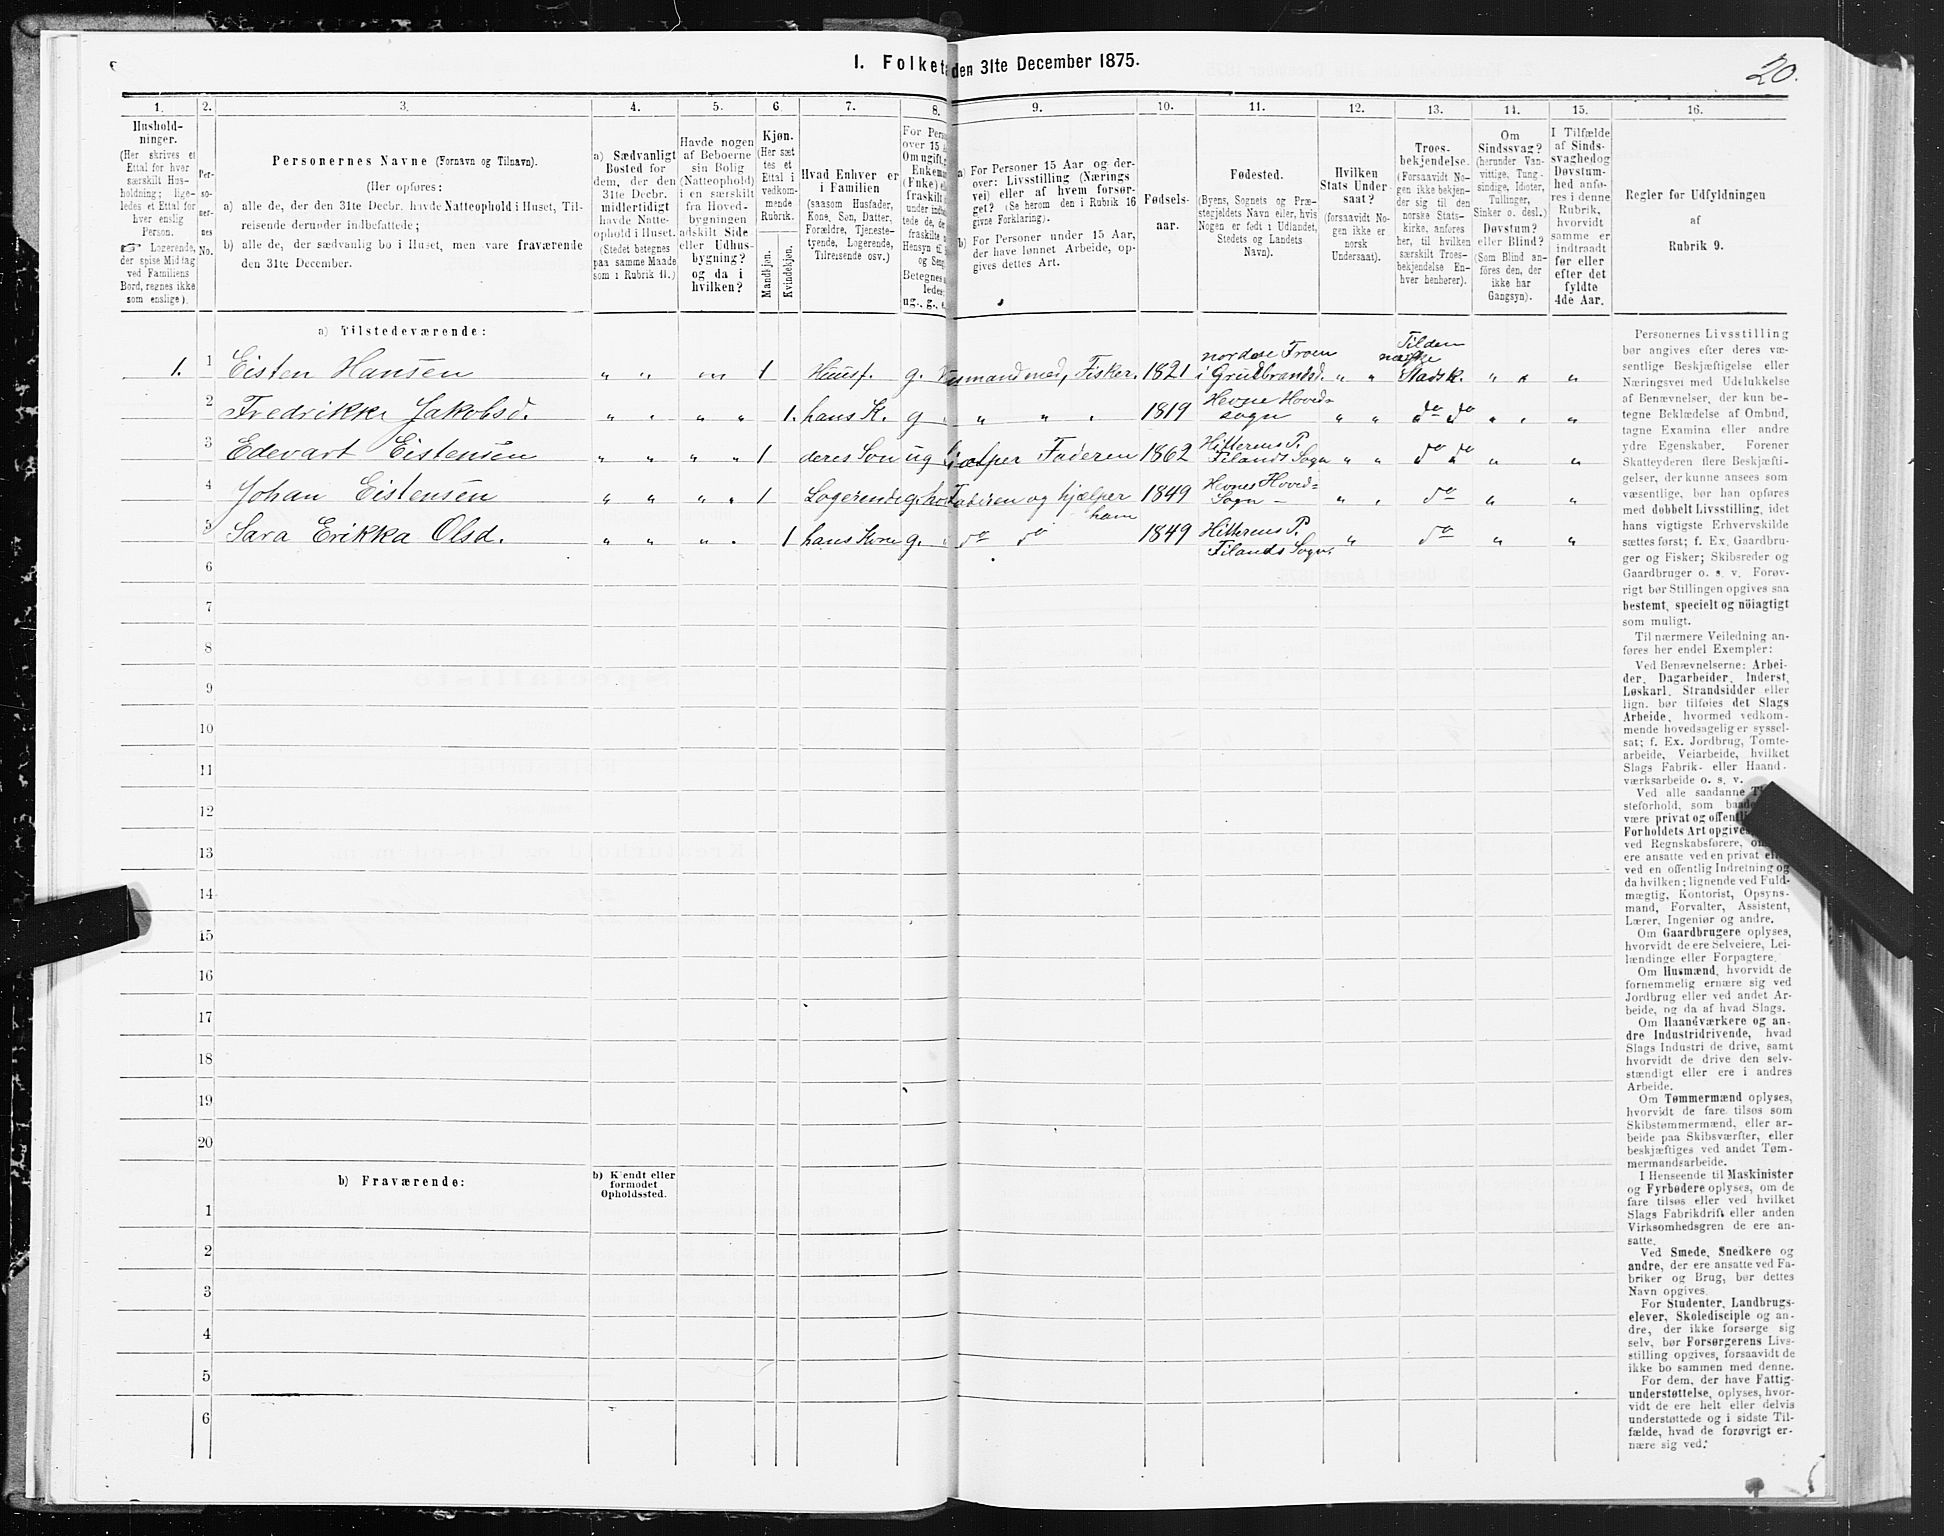 20.
I. Folketæ den 31te December 1875.
1. 2. 3. 4. 5. 6. 7. 8. 9. 10. 11. 12. 13. 14. 15. 16.
Hushold-
ninger.
(Her skrives et
Ettal for hver
særskilt Hus-
holdning; lige-
ledes et Ettal for
hver enslig
Person.
☞ Logerende,
der spise Middag
ved Familiens
Bord, regnes ikke
som enslige).
Per-
so-
ner-
nes
No.
Personernes Navne (Fornavn og Tilnavn).
(Her opføres:
a) alle de, der den 31te Decbr. havde Natteophold i Huset, Til-
reisende derunder indbefattede;
b) alle de, der sædvanlig bo i Huset, men vare fraværende
den 31te December.
a) Sædvanligt
Bosted for
dem, der den
31te Decbr.
midlertidigt
havde Natte-
ophold i Huset.
(Stedet betegnes
paa samme Maade
som i Rubrik 11.)
Havde nogen
af Beboerne
sin Bolig
(Natteophold)
i en særskilt
fra Hoved-
bygningen
adskilt Side
eller Udhus-
bygning?
og da i
hvilken?
Kjøn.
(Her sæt
tes et
Ettal i
vedkom-
mende
Rubrik.
Mandkjøn.
Kvindekjøn.
Hvad Enhver er
i Familien
(saasom Husfader,
Kone, Søn, Datter,
Forældre, Tjeneste-
tyende, Logerende,
Tilreisende osv.)
For Pers
over 15 A
Om ugift,
Enkema
(Enke) el
fraskilt
under indbe
tede de,
fraskilte
Hensyn til
og Seng
Betegnes
ledes:
ug., g., e.
a) For Personer 15 Aar og der-
over: Livsstilling (Nærings
vei) eller af hvem forsør-
get? (Se herom den i Rubrik 16
givne Forklaring).
b) For Personer under 15 Aar,
der have lønnet Arbeide, op-
gives dettes Art.
Fødsels-
aar.
Fødested.
(Byens, Sognets og Præ-
stegjeldets Navn eller, hvis
Nogen er født i Udlandet,
Stedets og Landets
Navn).
Hvilken
Stats Under-
saat?
(forsaavidt No-
gen ikke er
norsk
Undersaat).
Troes-
bekjendelse.
(Forsaavidt No-
gen ikke bekjen-
der sig til den
norske Stats-
kirke, anføres
her, til hvilken
særskilt Troes-
bekjendelse En-
hver henhører).
Om
Sindssvag?
(herunder Van-
vittige, Tung-
sindige, Idioter,
Tullinger,
Sinker o. desl.)
Døvstum?
eller Blind?
(Som Blind an-
føres den, der
ikke har
Gangsyn).
I Tilfælde
af Sinds-
svaghed og
Døvstum-
hed anfø-
res i denne
Rubrik,
hvorvidt
samme er
indtraadt
før eller
efter det
fyldte
4de Aar.
Regler for Udfyldningen
af
Rubrik 9.
a) Tilstedeværende:
1. 1 Eisten Hansen „ „ „ „ 1 Huusf. g. Husmand med, Fisker. 1821 nordre Froen i Grudbrandsd. „ „ Tilden norske Stadsk. „ „ „
2 Fredrikke Jakobsd. „ „ „ „ 1. hans K. g „ „ „ 1819 Hevne Hoved= sogn „ „ do do „ „ „
3 Edevart Eistensen „ „ „ „ 1 deres Søn ug hjælper Faderen 1862 Hitterens P. Filands Sogn „ „ do do „ „
4 Johan Eistensen „ „ „ „ 1 Logerende g. hos Faderen og hjælper ham 1849 Hevnes Hoved= Sogn — „ „ do „ „
5 Sara Erikka Olsd. „ „ „ „ 1 hans Kone g. „ do do 1849 Hitterens P. Filands Sogn. „ do „ „
6
7
8
9
10
11
12
13
14
15
16
17
18
19
20
b) Fraværende:
b) Kjendt eller
formodet
Opholdssted.
1
2
3
4
5
6
Personernes Livsstilling
bør angives efter deres væ-
sentlige Beskjæftigelse eller
Næringsvei med Udelukkelse
af Benævnelser, der kun be-
tegne Beklædelse af Ombud,
tagne Examina eller andre
ydre Egenskaber. Forener
Skatteyderen flere Beskjæfti-
gelser, der kunne ansees som
væsentlige, bør han opføres
med dobbelt Livsstilling, idet
hans vigtigste Erhvervskilde
sættes først; f. Ex. Gaardbru-
ger og Fisker; Skibsreder og
Gaardbruger o. s. v. Forøv-
rigt bør Stillingen opgives saa
bestemt, specielt og nöiagtigt
som muligt.
Til nærmere Veiledning an-
føres her endel Exempler:
Ved Benævnelserne: Arbei-
der, Dagarbeider, Inderst,
Løskarl, Strandsidder eller
lign. bør tilføies det Slags
Arbeide, hvormed vedkom-
mende hovedsagelig er syssel-
sat; f. Ex. Jordbrug, Tomte-
arbeide, Veiarbeide, hvilket
Slags Fabrik- eller Haand-
værksarbeide o. s. v.
Ved alle saadanne
steforhold, som
være privat og
Forholdets Art
ved Regnskabsførere,
ere ansatte ved en privat eller
ved en offentlig Indretning og
da hvilken; lignende ved Fuld-
mægtig, Kontorist, Opsyns-
mand, Forvalter, Assistent,
Lærer, Ingeniør og andre.
Om Gaardbrugere oplyses,
hvorvidt de ere Selveiere, Lei-
lændinge eller Forpagtere.
Om Husmænd, hvorvidt de
fornemmelig ernære sig ved
Jordbrug eller ved andet Ar-
beide, og da af hvad Slags.
Om Haandværkere og an-
dre Industridrivende, hvad
Slags Industri de drive, samt
hvorvidt de drive den selv-
stændigt eller ere i andres
Arbeide.
Om Tømmermænd oplyses,
hvorvidt de fare tilsøs som
Skibstømmermænd, eller ar-
beide paa Skibsværfter, eller
beskjæftiges ved andet Tøm-
mermandsarbeide.
I Henseende til Maskinister
og Fyrbødere oplyses, om de
fare tilsøs eller ved hvilket
Slags Fabrikdrift eller anden
Virksomhedsgren de ere an-
satte.
Ved Smede, Snedkere og
andre, der ere ansatte ved Fa-
briker og Brug, bør dettes
Navn opgives.
For Studenter, Landbrugs-
elever, Skoledisciple og an-
dre, der ikke forsørge sig
selv, bør Forsørgerens Livs-
stilling opgives, forsaavidt de
ikke bo sammen med denne.
For dem, der have Fattig-
understøttelse, oplyses, hvor-
vidt de ere helt eller delvis
understøttede og i sidste Til-
fælde, hvad de forøvrigt er-
nære sig ved.